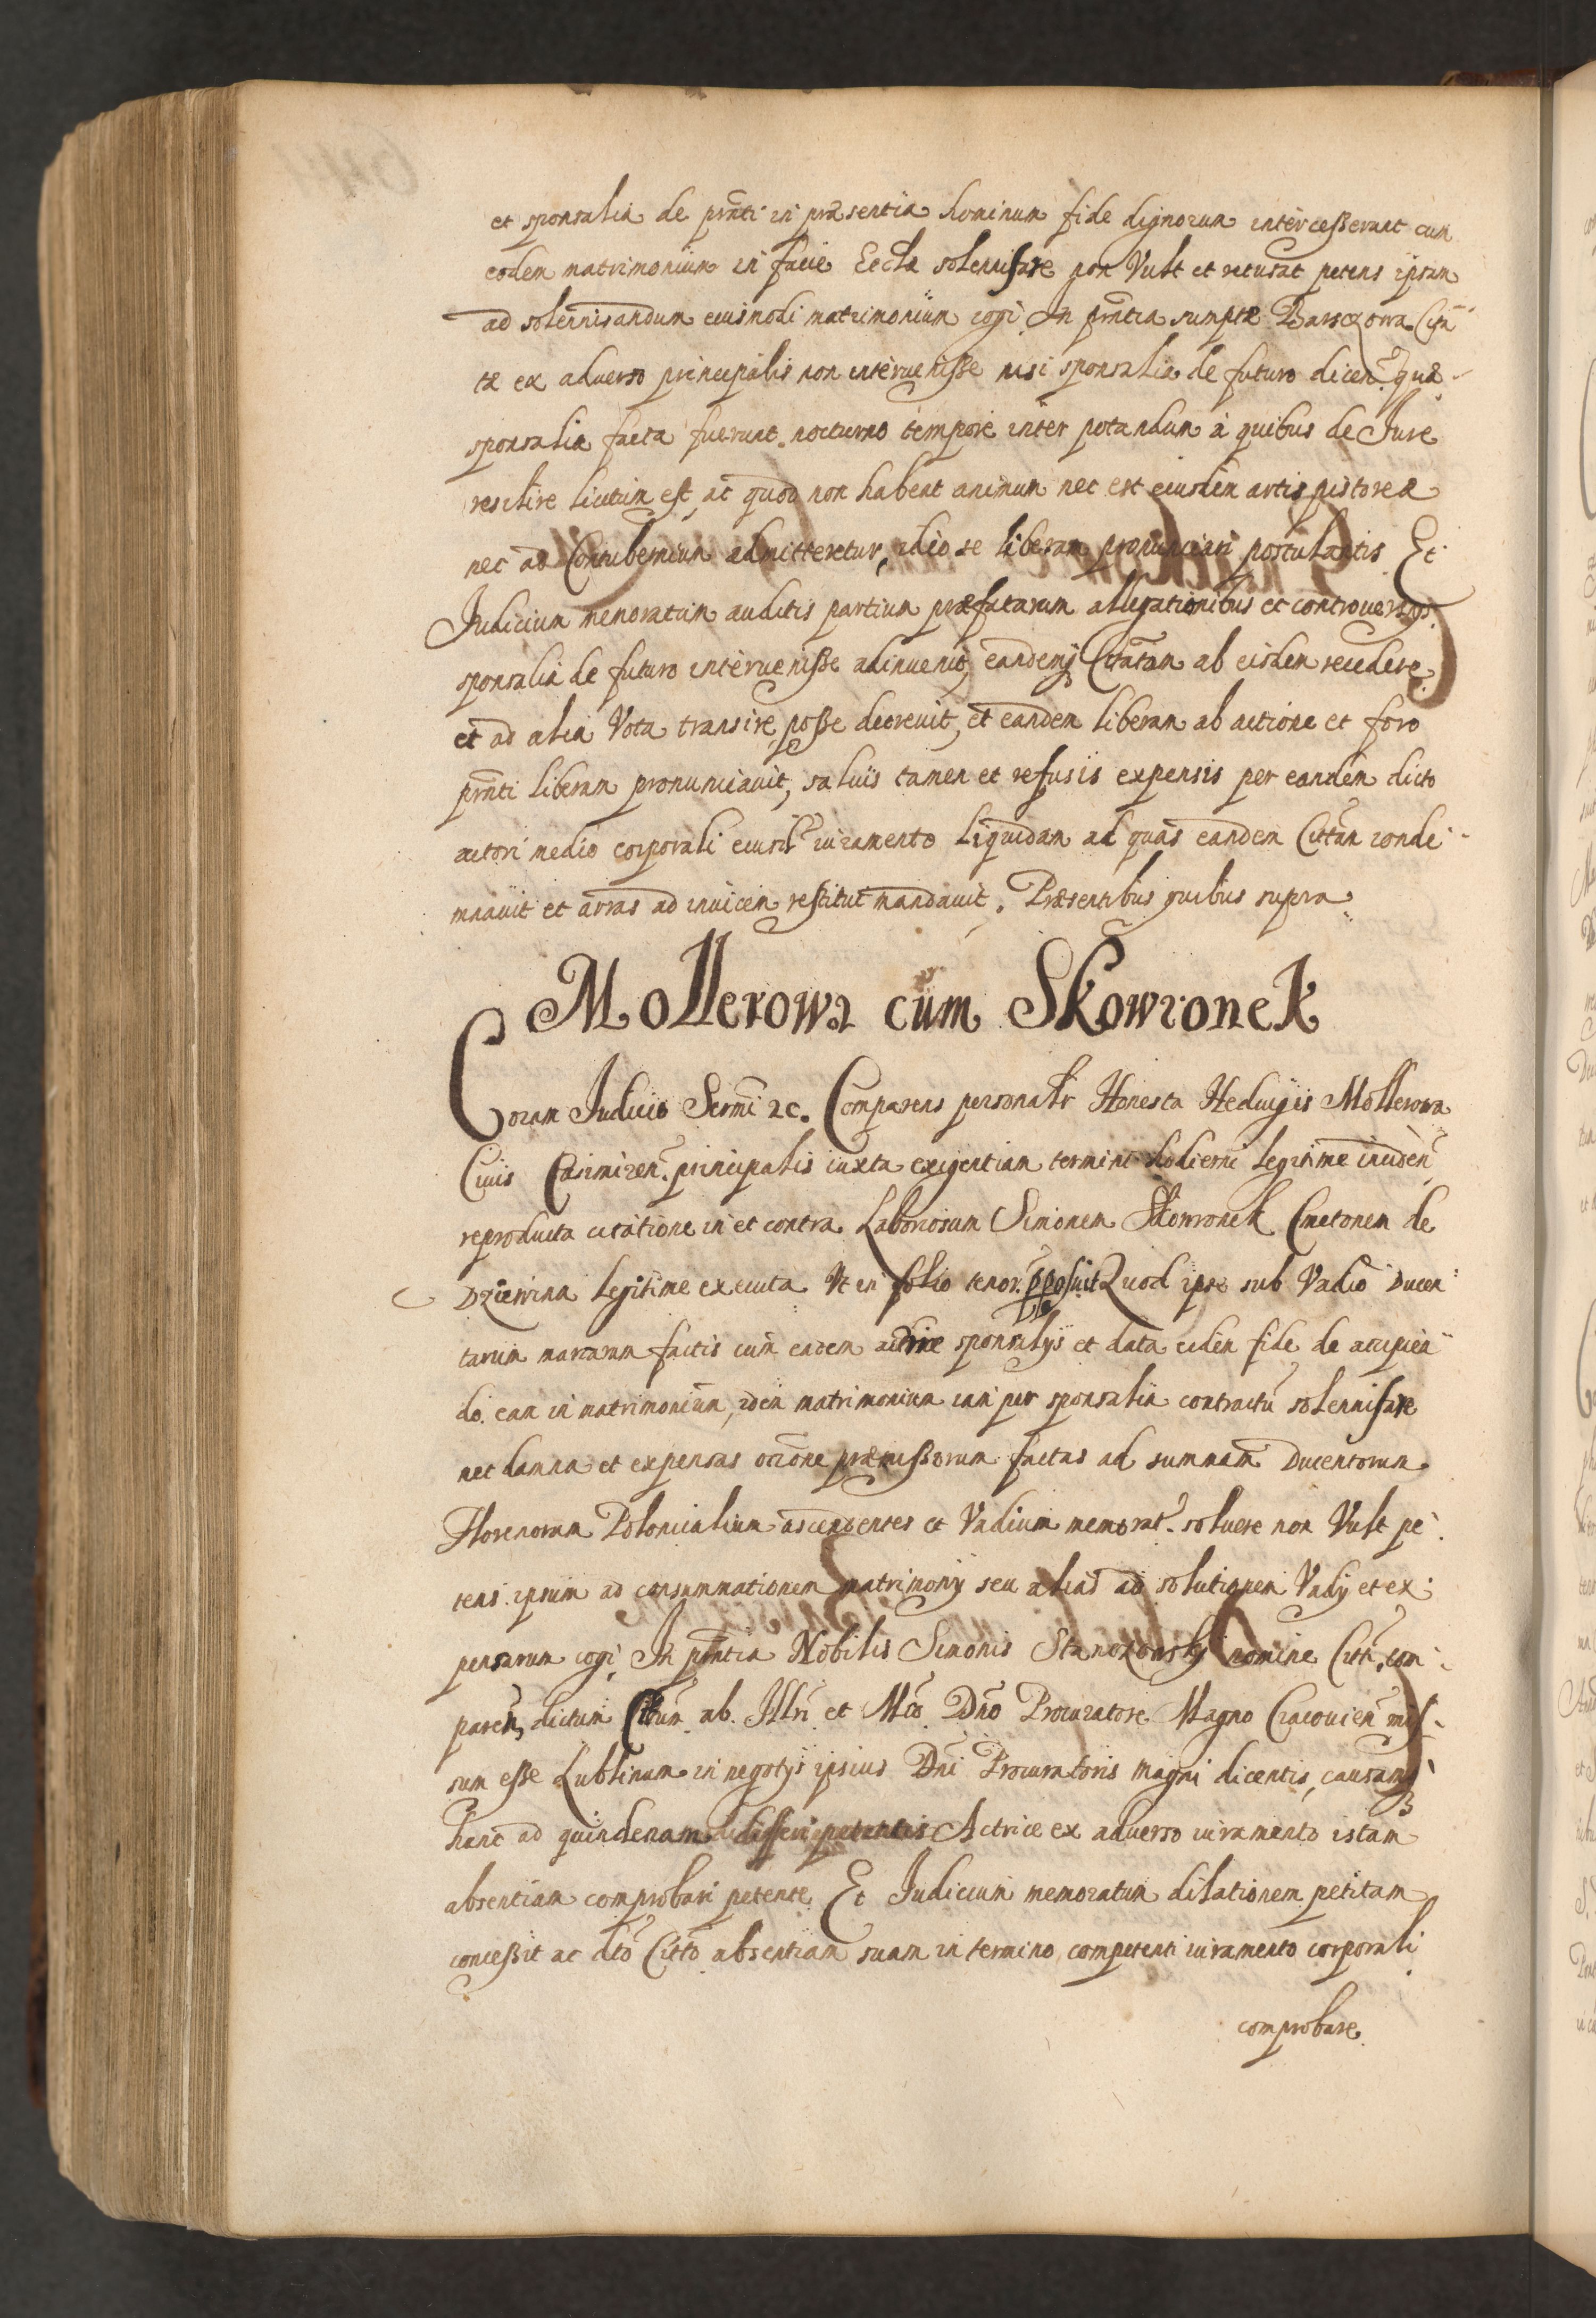 et sponsalia de pr̃nti in præsentia hominum fide dignorum intercesserant cum
eodem matrimonium in facie Eccłæ solennisare non Vult et recusat petens ipsam
ad solennisandum eiusmodi matrimonium cogi In pr̃ntia Barsczowa Cita
tæ ex aduerso principalis non interuenisse nisi sponsalia de futuro dicen. quæ
sponsalia facta fuerunt nocturno tempore inter potandum à quibus de Jure
resilire licitum est, ac quod non habent animum nec est eiusdem artis pistoreæ
nec ad Contubernium admitteretur, ideo se liberam pronunciari postulantis Et
Judicium memoratum auditis partium præfatarum allegationibus et controuersijs
sponsalia de futuro interuenisse adinuenit, eandemq Citatam ab eisdem recedere
et ad alia Vota transire posse decreuit, et eandem liberam ab actione et foro
pr̃nti liberam pronunciauit, saluis tamen et refusis expensis per eandem dicto
actori medio corporali eiusd iuramento liquidam ad quas eandem Citt̃am conde
mnauit et arras ad inuicem restitui mandauit. Præsentibus quibus supra
Mollerowa cum Skowronek
Coram Judicio Sermi 2c. Comparens personalr Honesta Heduigis Mollerowa
Ciuis Casimiren. principalis iuxta exigentiam termini hodierni legitime inciden
reproducta citatione in et contra Laboriosum Simonem Skowronek Cmetonem de
Dziewina legitime executa Vt in folio tenor. pposuit Quod ipse sub Vadio Ducen
tarum marcarum factis cum eadem actrice sponsalijs et data eidem fide de accipien
do eam in matrimonium, idem matrimonium iam per sponsalia contractu solennisare
nec damna et expensas oc̃one præmissorum factas ad summam Ducentorum
Florenorum Polonicalium ascendentes et Vadium memorat. soluere non Vult pe
tens ipsum ad consummationem matrimonij seu alias ad solutionem Vadij et ex
pensarum cogi In pñtia Nobilis Simonis Stanozowskij nomine Citti com
paren, dictum Cittum ab Illri et Mco Dno Procuratore Magno Cracouien mis
sum esse Lublinum in negotijs ipsius Dni Procuratoris magni dicentis, causamq
hanc ad quindenam differri petentis Actrice ex aduerso iuramento istam
absentiam comprobari petente Et Judicium memoratum dilationem petitam
concessit ac dto Citto absentiam suam in termino competenti iuramento corporali
comprobare